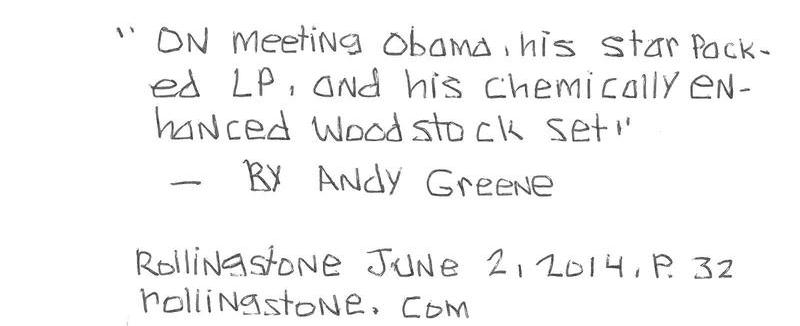 "ON Meeting Obama, his star Pack-
ed LP, and his chemically en-
hanced Woodstock set"
— BY ANdy Greene
RolliNgstoNe JUNe 2, 2014, P. 32
rolliNgstoNe. Com